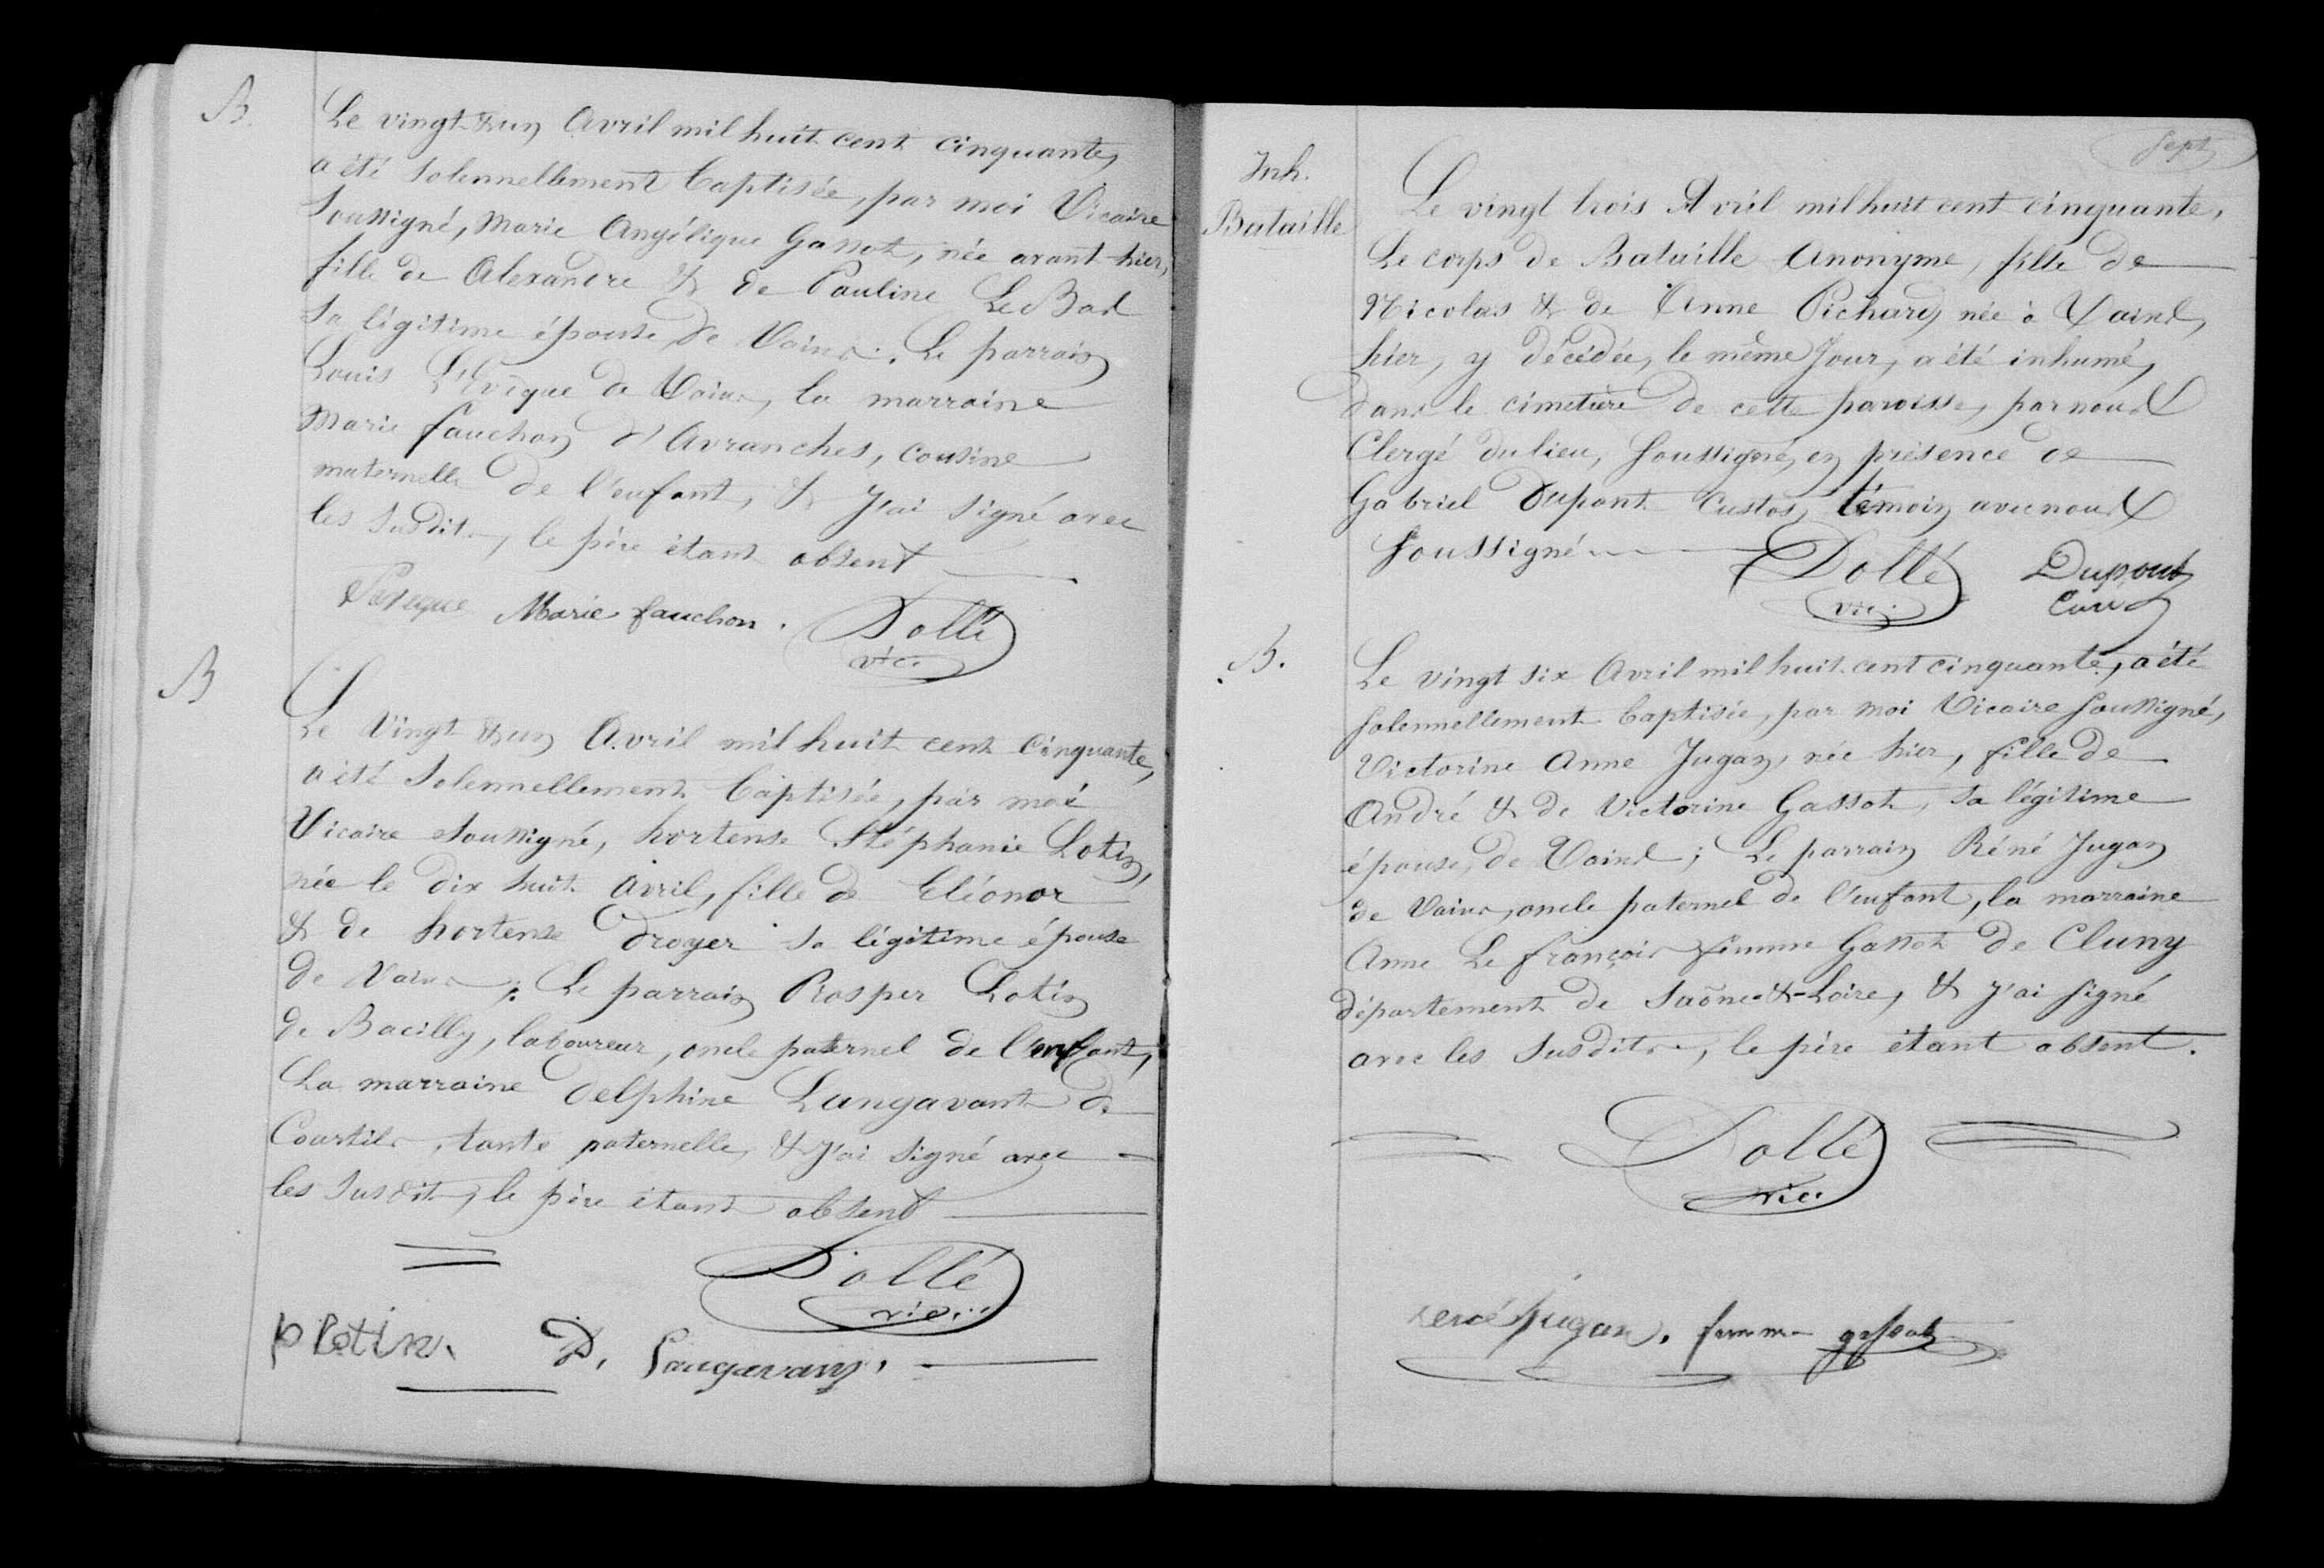 B.
Le vingt & un Avril mil huit cent cinquante,
a été solennellement baptisée, par moi Vicaire
Soussigné, Marie Angélique Gassot, née avant-hier,
fille de Alexandre & de Pauline Le Bad
Sa légitime épouse, de Vains. Le parrain
Louis L'Evêque de Vains, la marraine
Marie fauchon d'Avranches, cousine
maternelle de l'enfant, & j'ai signé avec
les susdits, le père étant absent
Marie fauchon. Dollé
vic.
B
Le Vingt & un Avril mil huit cent Cinquante,
a été Solennellement baptisée, par moi
Vicaire soussigné, hortense Stéphanie Lotin,
née le dix huit Avril, fille de Eléonor
& de hortense Droyer sa légitime épouse
de Vains ; Le parrain Prosper Lotin
de Bacilly, laboureur, oncle paternel de l'enfant,
La marraine Delphine Langavant de
Courtils, tante paternelle, & j'ai signé avec
les susdits, le père étant absent
Dollé
vic.
p lotin. D. Langavant.
sept
Inh.
Bataille
Le vingt trois Avril mil huit cent cinquante,
Le corps de Bataille Anonyme, fille de
Nicolas & de Anne Pichard, née à Vains,
hier, y décédée, le même Jour, a été inhumé,
dans le cimetière de cette paroisse, par nous
Clergé du lieu, Soussigné, en présence de
Gabriel Dupont Custos, témoin avec nous
Soussigné Dollé Dupont
vic. Custos
B.
Le vingt six Avril mil huit cent cinquante, a été
solennellement baptisée, par moi Vicaire soussigné,
Victorine Anne Jugan, née hier, fille de
André & de Victorine Gassot, sa légitime
épouse, de Vains ; Le parrain Réné Jugan
de Vains, oncle paternel de l'enfant, la marraine
Anne Le françois femme Gassot de Cluny
département de Saône-&-Loire, & j'ai signé
avec les susdits, le père étant absent.
Dollé
vic.
rené jugan. femme gassot